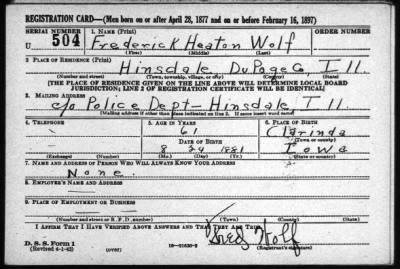 REGISTRATION CARD—(Men born on or after April 28, 1877 and on or before February 16, 1897)
SERIAL NUMBER 1. NAME (Print) ORDER NUMBER
U 504 Frederick Heaton Wolf
(First) (Middle) (Last)
2. PLACE OF RESIDENCE (Print)
Hinsdale DuPage Co Ill.
(Number and street) (Town, township, village, or city) (County) (State)
[THE PLACE OF RESIDENCE GIVEN ON THE LINE ABOVE WILL DETERMINE LOCAL BOARD
JURISDICTION; LINE 2 OF REGISTRATION CERTIFICATE WILL BE IDENTICAL]
3. MAILING ADDRESS
c/o Police Dept - Hinsdale, Ill.
[Mailing address if other than place indicated on line 2. If same insert word same]
4. TELEPHONE 5. AGE IN YEARS 6. PLACE OF BIRTH
61 Clarinda
DATE OF BIRTH (Town or county)
8 24 1881 Iowa
(Exchange) (Number) (Mo.) (Day) (Yr.) (State or country)
7. NAME AND ADDRESS OF PERSON WHO WILL ALWAYS KNOW YOUR ADDRESS
None.
8. EMPLOYER'S NAME AND ADDRESS
9. PLACE OF EMPLOYMENT OR BUSINESS
(Number and street or R. F. D. number) (Town) (County) (State)
I AFFIRM THAT I HAVE VERIFIED ABOVE ANSWERS AND THAT THEY ARE TRUE.
D. S. S. Form 1
(Revised 4-1-42) (over) Fred Wolf
(Registrant's signature)